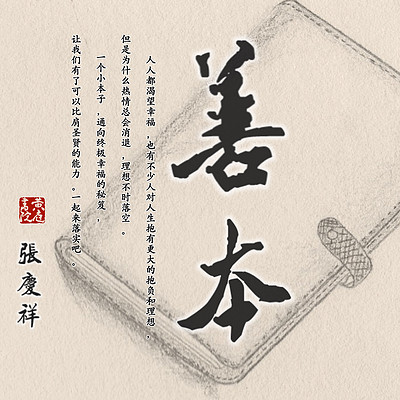 善本
人人都渴望幸福，也有不少人对人生抱有更大的抱负和理想，
但是为什么热情总会消退，理想不时落空。
一个小本子，通向终极幸福的秘笈，
让我们有了可以比肩圣贤的能力。一起来落实吧。
黄庭书院
張慶祥